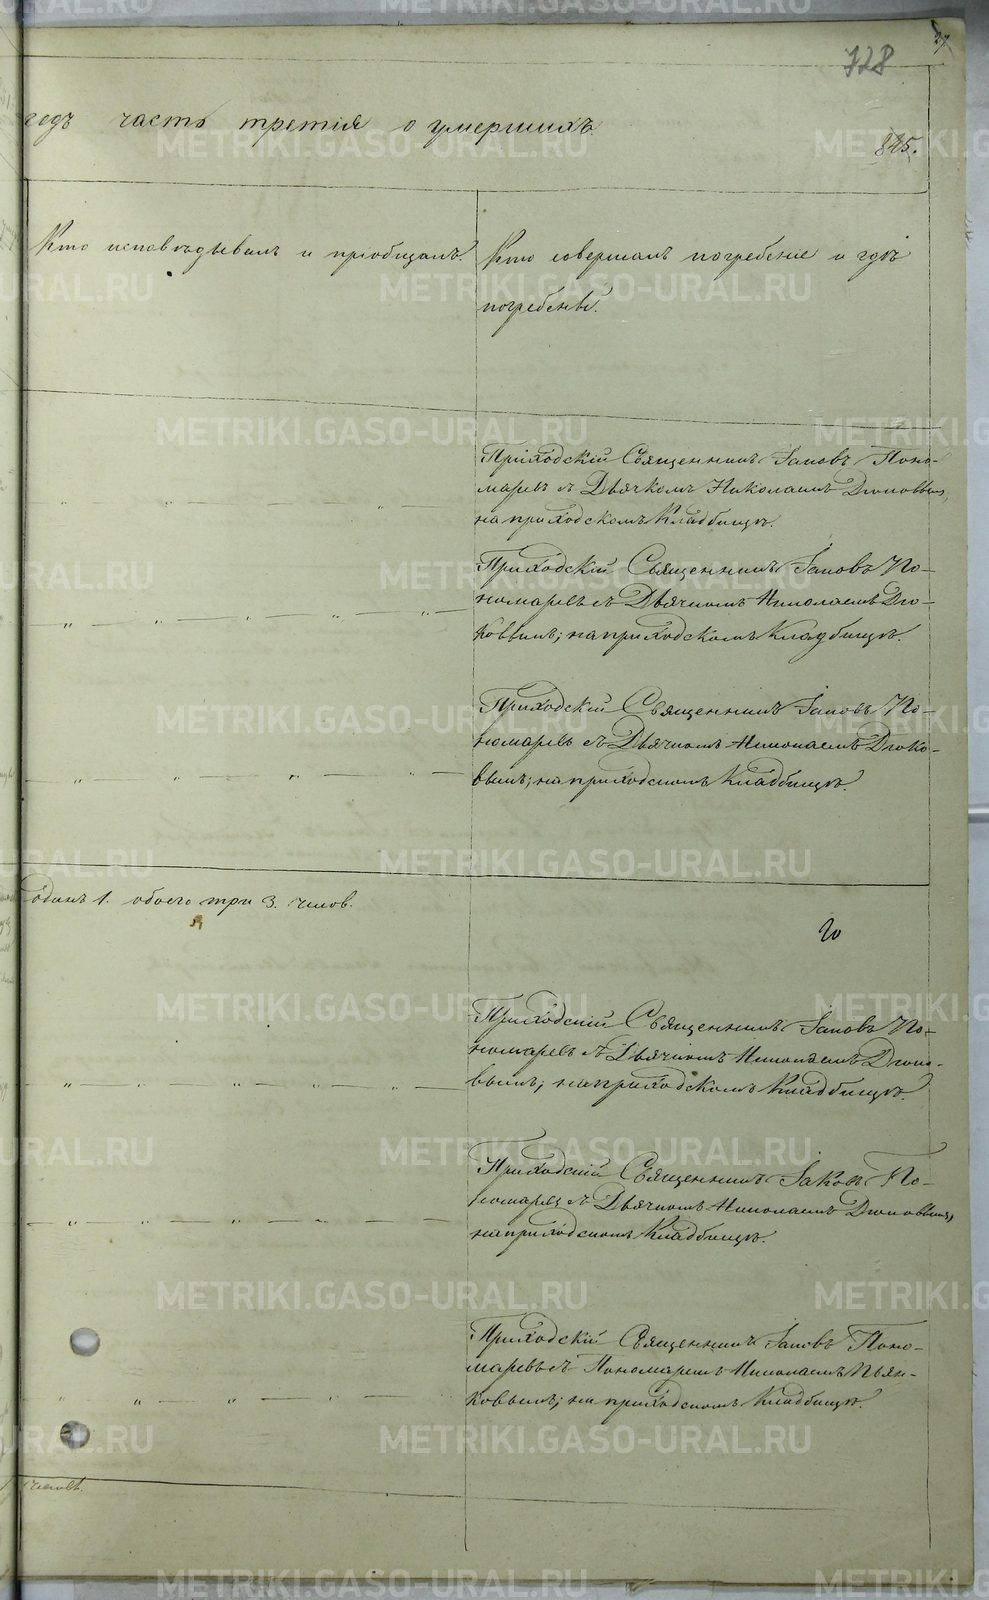 728
годъ часть третія о умершихъ
825.
Кто исповѣдывалъ и пріобщалъ.
Кто совершалъ погребеніе и гдѣ
погребены.
Приходскій Священникъ Іаковъ Поно-
маревъ съ Дьячкомъ Николаемъ Дюковымъ,
на приходскомъ Кладбищѣ.
Приходскій Священникъ Іаковъ По-
номаревъ съ Дьячкомъ Николаемъ Дю-
ковымъ; на приходскомъ Кладбищѣ.
Приходскій Священникъ Іаковъ По-
номаревъ съ Дьячкомъ Николаемъ Дюко-
вымъ; на приходскомъ Кладбищѣ.
одинъ 1. обоего три 3. челов.
Приходскій Священникъ Іаковъ По-
номаревъ съ Дьячкомъ Николаемъ Дюко-
вымъ; на приходскомъ Кладбищѣ.
Приходскій Священникъ Іаковъ По-
номаревъ съ Дьячкомъ Николаемъ Дюковымъ,
на приходскомъ Кладбищѣ.
Приходскій Священникъ Іаковъ Поно-
маревъ съ Пономаремъ Николаемъ Пьян-
ковымъ; на приходскомъ Кладбищѣ.
челов.
METRIKI.GASO-URAL.RU